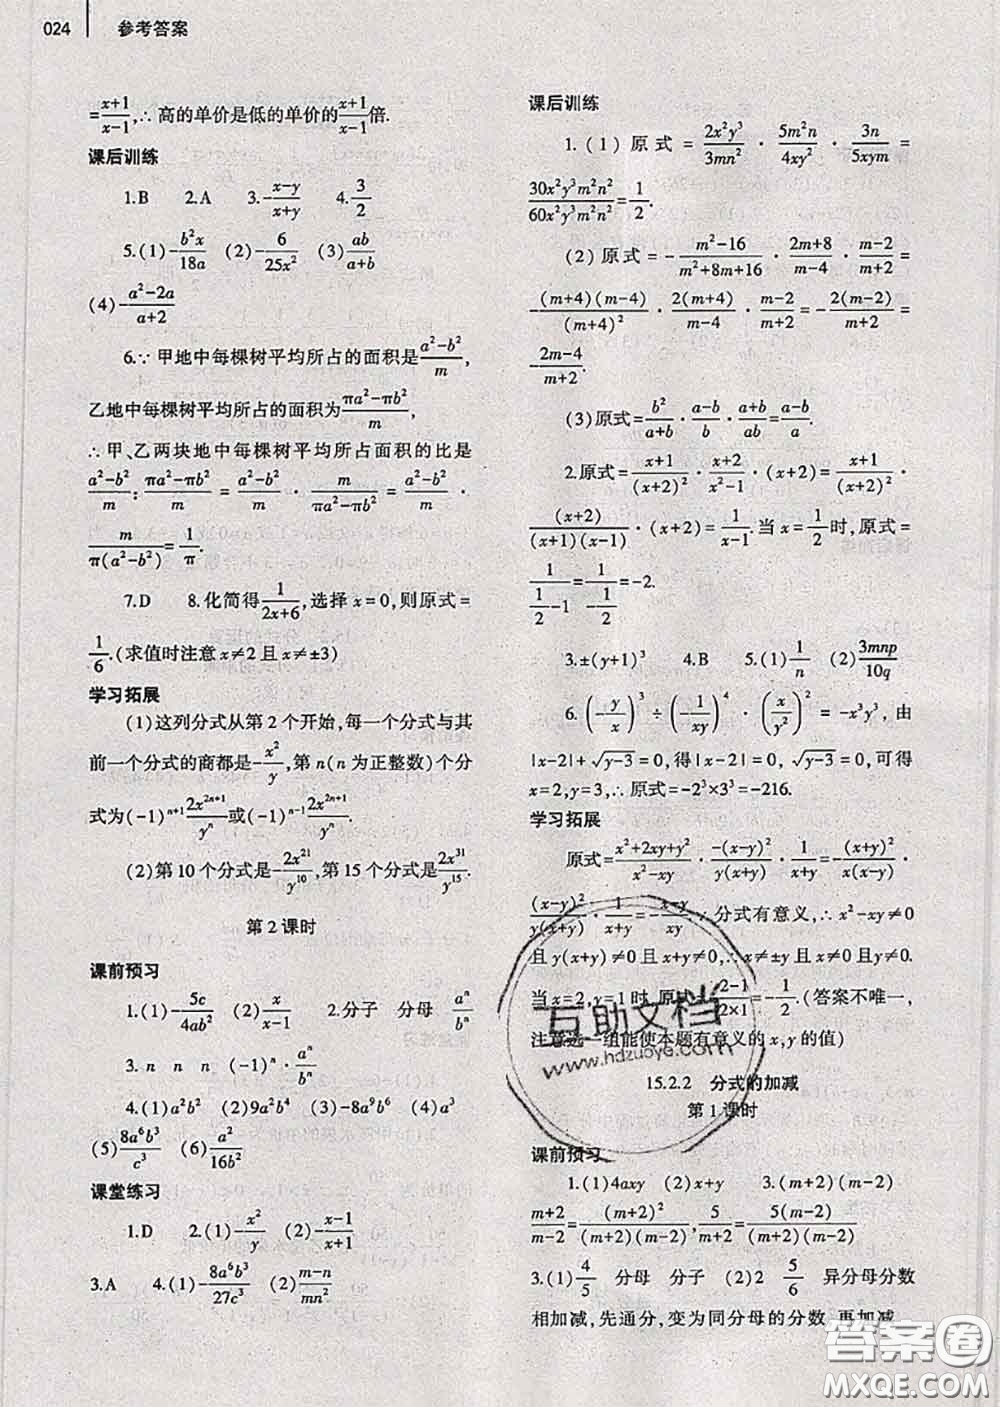 024 参考答案
=\frac{x+1}{x-1},∴ 高的单价是低的单价的\frac{x+1}{x-1}倍.
课后训练
1.B 2.A 3.-\frac{x-y}{x+y} 4.\frac{3}{2}
5.(1)-\frac{b^2x}{18a} (2)-\frac{6}{25x^2} (3)\frac{ab}{a+b}
(4)-\frac{a^2-2a}{a+2}
6.∵ 甲地中每棵树平均所占的面积是\frac{a^2-b^2}{m},
乙地中每棵树平均所占的面积为\frac{πa^2-πb^2}{m},
∴ 甲、乙两块地中每棵树平均所占面积的比是
\frac{a^2-b^2}{m}:\frac{πa^2-πb^2}{m}=\frac{a^2-b^2}{m}·\frac{m}{πa^2-πb^2}=\frac{a^2-b^2}{m}·
\frac{m}{π(a^2-b^2)}=\frac{1}{π}.
7.D 8.化简得\frac{1}{2x+6},选择 x=0,则原式=
\frac{1}{6}.(求值时注意 x≠2 且 x≠±3)
学习拓展
(1)这列分式从第 2 个开始,每一个分式与其
前一个分式的商都是-\frac{x^2}{y},第 n(n 为正整数)个分
式为(-1)^{n+1}\frac{2x^{2n+1}}{y^n}或(-1)^{n-1}\frac{2x^{2n+1}}{y^n}.
(2)第 10 个分式是-\frac{2x^{21}}{y^{10}},第 15 个分式\frac{2x^{31}}{y^{15}}.
第 2 课时
课前预习
1.(1)-\frac{5c}{4ab^2} (2)\frac{x}{x-1} 2.分子 分母 \frac{a^n}{b^n}
3.n n n (-1)^n·\frac{a^n}{b^n}
4.(1)a^2b^2 (2)9a^2b^4 (3)-8a^9b^6 (4)a^3
(5)\frac{8a^6b^3}{c^3} (6)\frac{a^2}{16b^2}
课堂练习
1.D 2.(1)-\frac{x^2}{y} (2)-\frac{x-1}{x+1}
3.A 4.(1)-\frac{8a^6b^3}{27c^3} (2)\frac{m-n}{mn^2}
课后训练
1.(1)原式=\frac{2x^2y^3}{3mn^2}·\frac{5m^2n}{4xy^2}·\frac{3n}{5xym}=
\frac{30x^2y^3m^2n^2}{60x^2y^3m^2n^2}=\frac{1}{2}.
(2)原式=-\frac{m^2-16}{m^2+8m+16}·\frac{2m+8}{m-4}·\frac{m-2}{m+2}=
-\frac{(m+4)(m-4)}{(m+4)^2}·\frac{2(m+4)}{m-4}·\frac{m-2}{m+2}=-\frac{2(m-2)}{m+2}=
-\frac{2m-4}{m+2}.
(3)原式=\frac{b^2}{a+b}·\frac{a-b}{b}·\frac{a+b}{ab}=\frac{a-b}{a}.
2.原式=\frac{x+1}{(x+2)^2}·\frac{x+2}{x^2-1}·(x+2)=\frac{x+1}{(x+2)^2}·
\frac{(x+2)}{(x+1)(x-1)}·(x+2)=\frac{1}{x-1}.当 x=\frac{1}{2}时,原式=
\frac{1}{\frac{1}{2}-1}=\frac{1}{-\frac{1}{2}}=-2.
3.±(y+1)^3 4.B 5.(1)\frac{1}{n} (2)\frac{3mnp}{10q}
6.(-\frac{y}{x})^3÷(-\frac{1}{xy})^4·(\frac{x}{y^2})^2=-x^3y^3,由
|x-2|+\sqrt{y-3}=0,得|x-2|=0,\sqrt{y-3}=0,可得
x=2,y=3,∴ 原式=-2^3×3^3=-216.
学习拓展
原式=\frac{x^2+2xy+y^2}{x^2-xy}·\frac{-(x-y)^2}{y(x+y)}·\frac{1}{x+y}=-\frac{(x+y)^2}{x(x-y)}·
\frac{(x-y)^2}{y(x+y)}·\frac{1}{x+y}=-\frac{x-y}{xy}.∵ 分式有意义,∴ x^2-xy≠0
且 y(x+y)≠0 且 x+y≠0,∴ x≠±y 且 x≠0 且 y≠0.
当 x=2,y=1 时,原式=-\frac{2-1}{2×1}=-\frac{1}{2}.(答案不唯一,
注意选一组能使本题有意义的 x,y 的值)
15.2.2 分式的加减
第 1 课时
课前预习
1.(1)4axy (2)x+y 3.(m+2)(m-2)
\frac{m+2}{m-2}=\frac{(m+2)^2}{(m+2)(m-2)},\frac{5}{m+2}=\frac{5(m-2)}{(m+2)(m-2)}
3.(1)\frac{4}{5} 分母 分子 (2)2 \frac{5}{6} 异分母分数
相加减,先通分,变为同分母的分数,再加减
互助文档
www.hdzuoye.com
答案圈
MXQE.COM